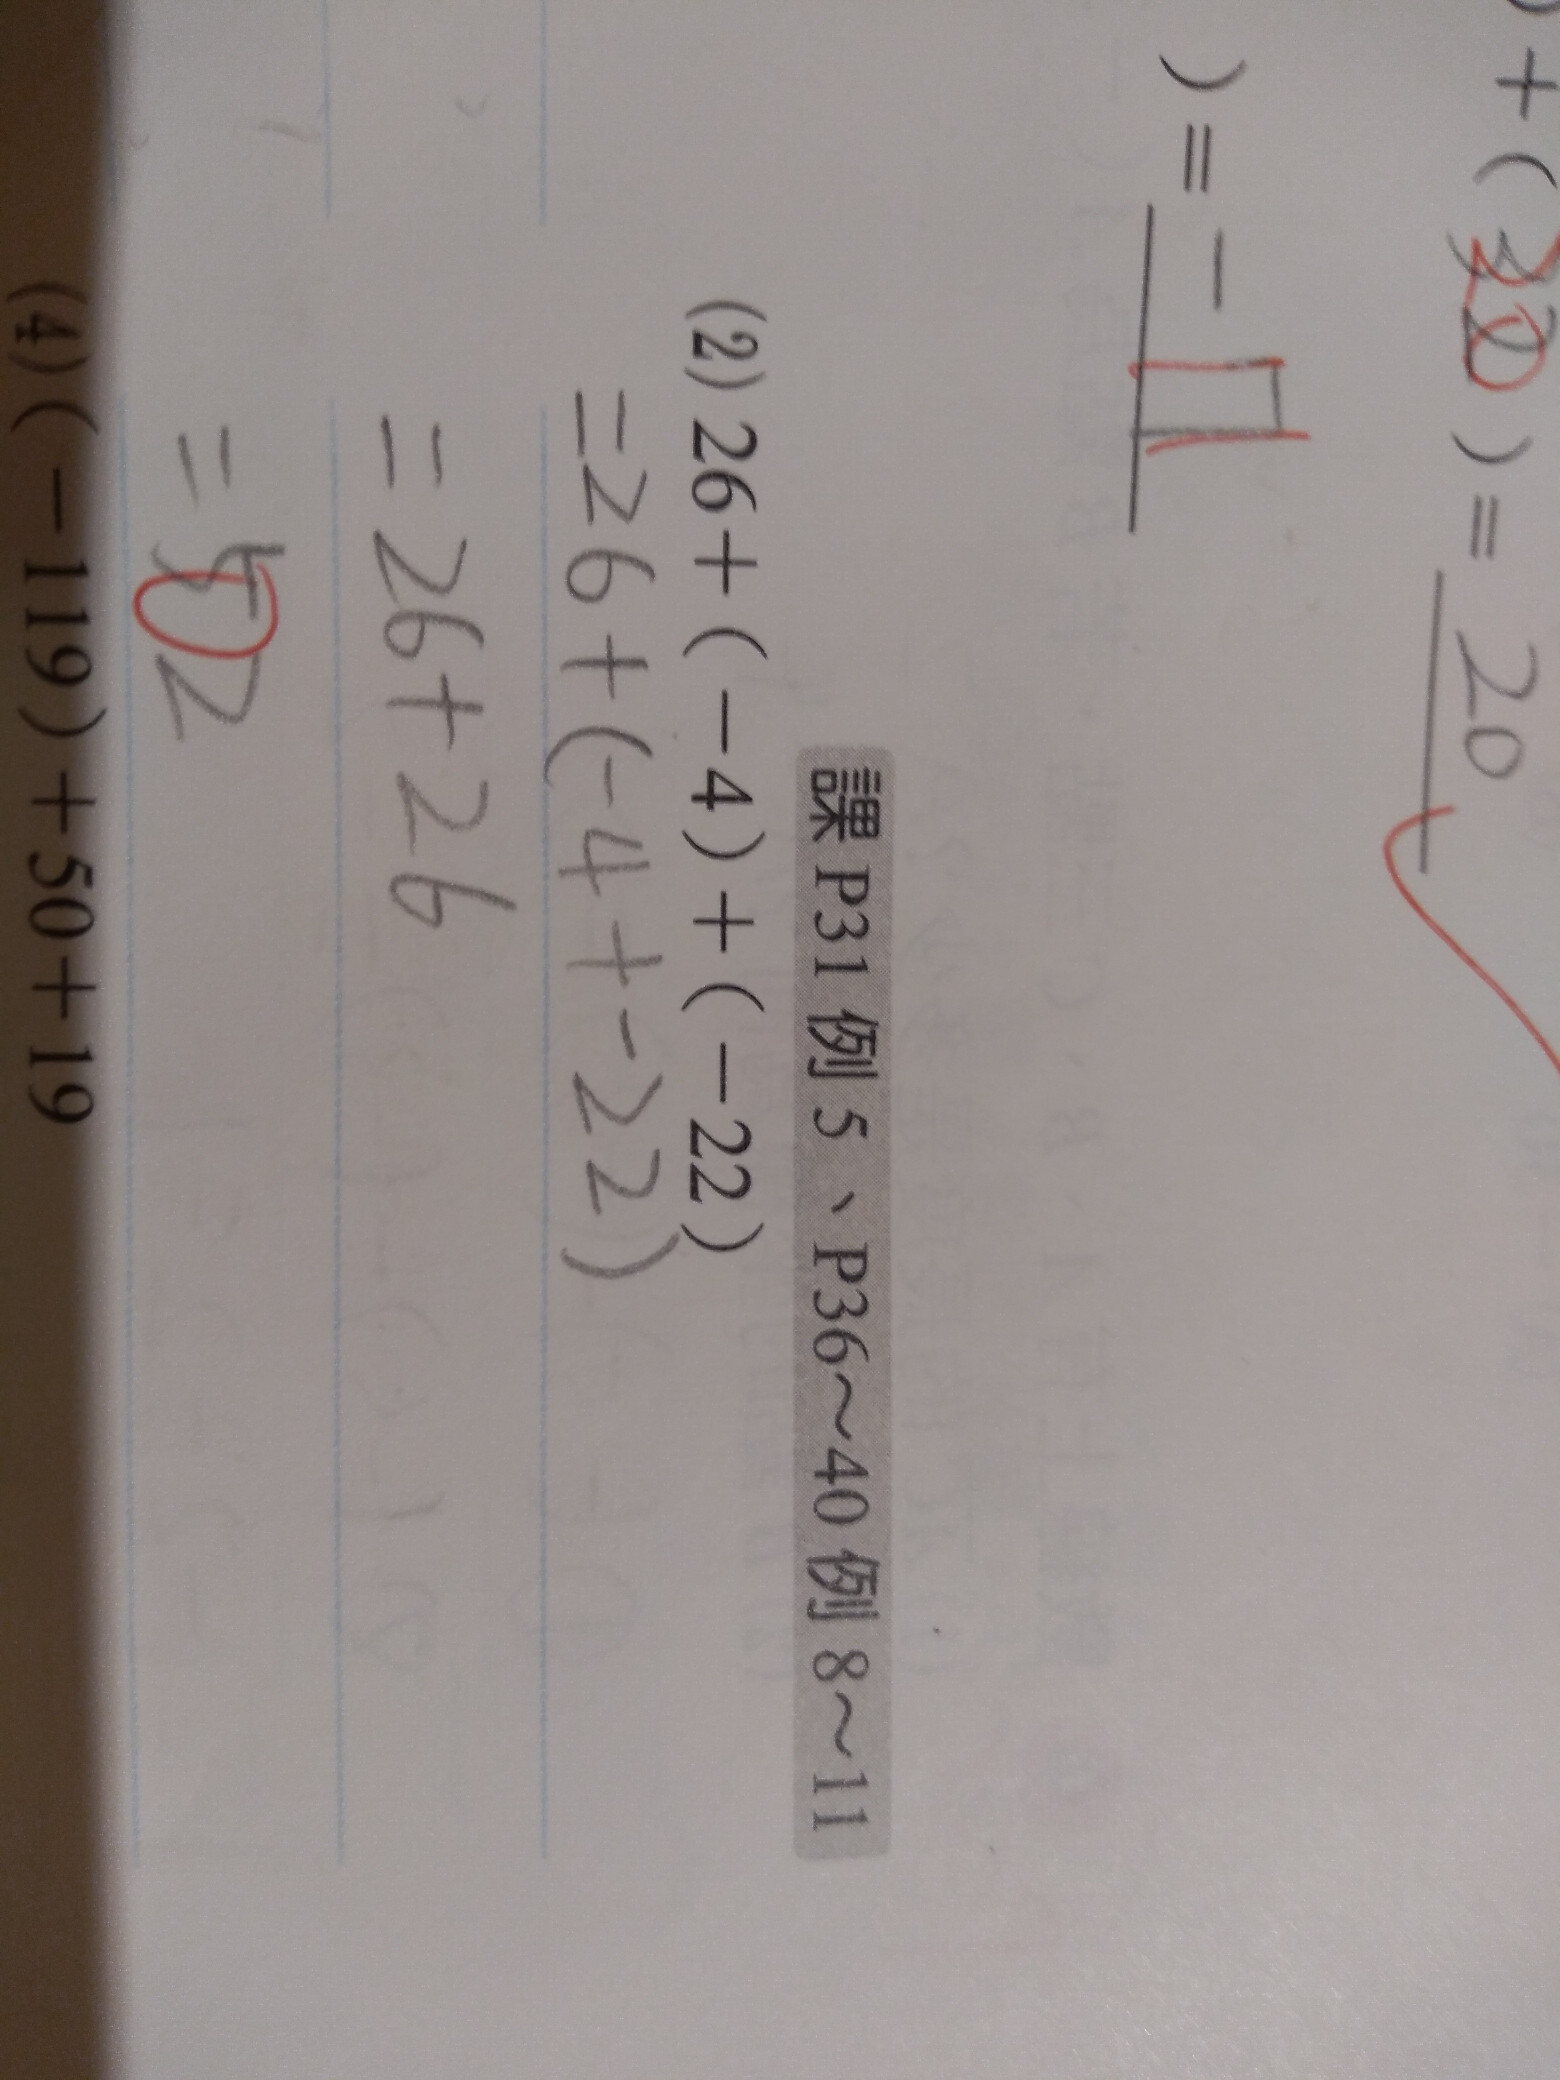 +( 30 )= 20
)= -11
課 P31 例 5、P36～40 例 8～11
(2) 26+(-4)+(-22)
=26+(-4+-22)
=26+26
=52
0
(4) (-119)+50+19